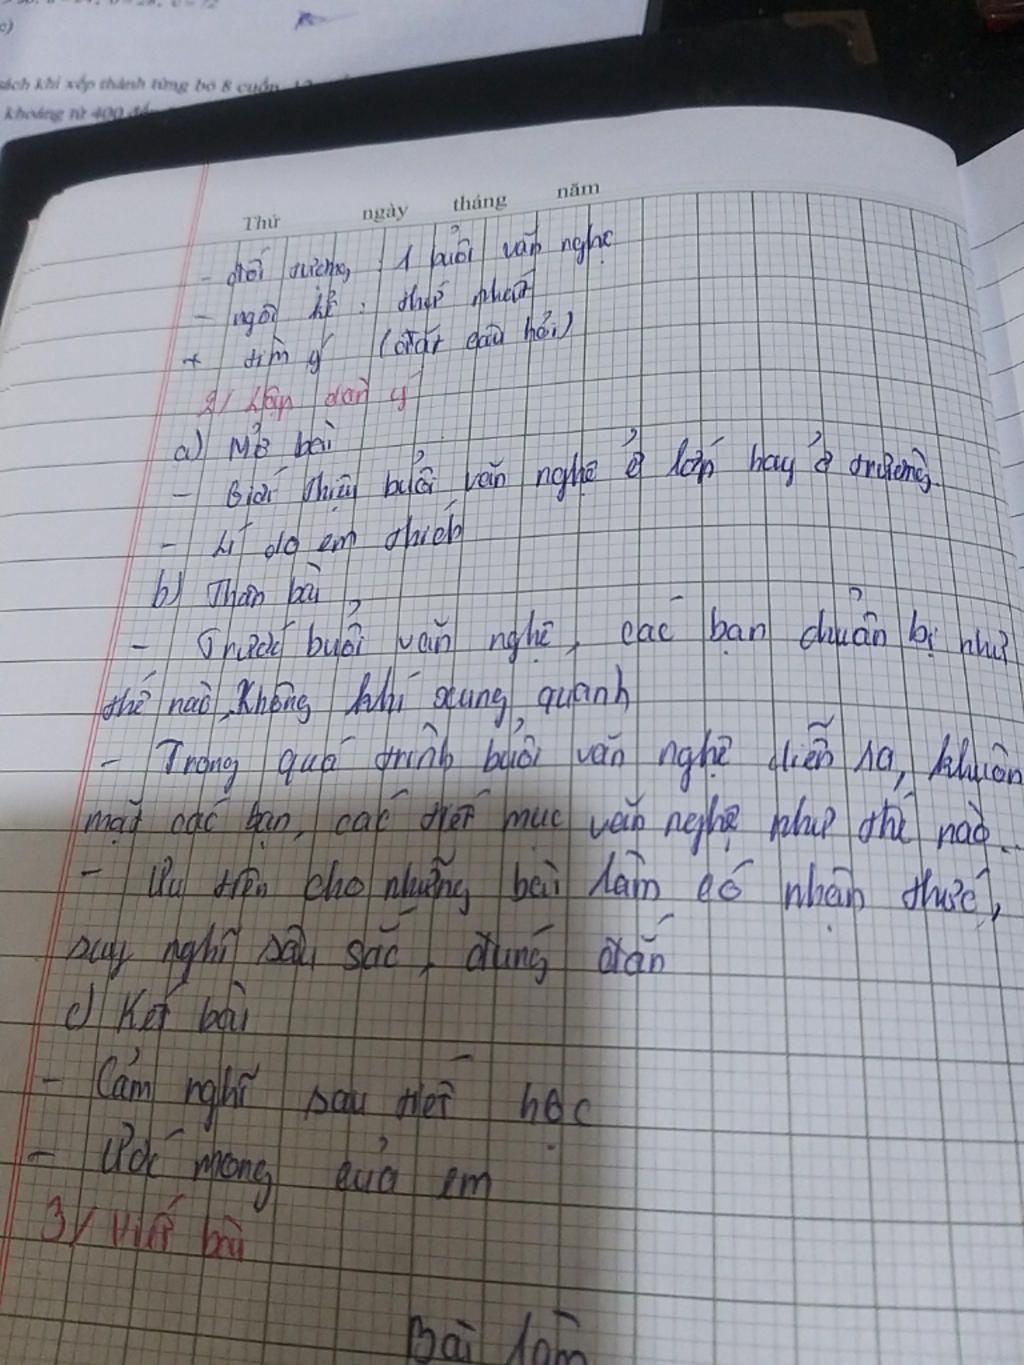 c)
sách khi xếp thành từng bó 8 cuốn,
khoảng từ 400 đến
Thứ ngày tháng năm
- đối tượng : 1 buổi văn nghệ
- ngôi kể : thứ nhất
+ tìm ý (đặt câu hỏi)
2/ Lập dàn ý
a) Mở bài
- Giới thiệu buổi văn nghệ ở lớp hay ở trường.
- Lí do em thích
b) Thân bài
- Trước buổi văn nghệ, các bạn chuẩn bị như
thế nào, Không khí xung quanh
- Trong quá trình buổi văn nghệ diễn ra, khuôn
mặt các bạn, các tiết mục văn nghệ như thế nào...
- Ưu tiên cho những bài làm có nhận thức,
suy nghĩ sâu sắc, đúng đắn
c) Kết bài
- Cảm nghĩ sau tiết học
- Ước mong của em
3/ Viết bài
Bài làm